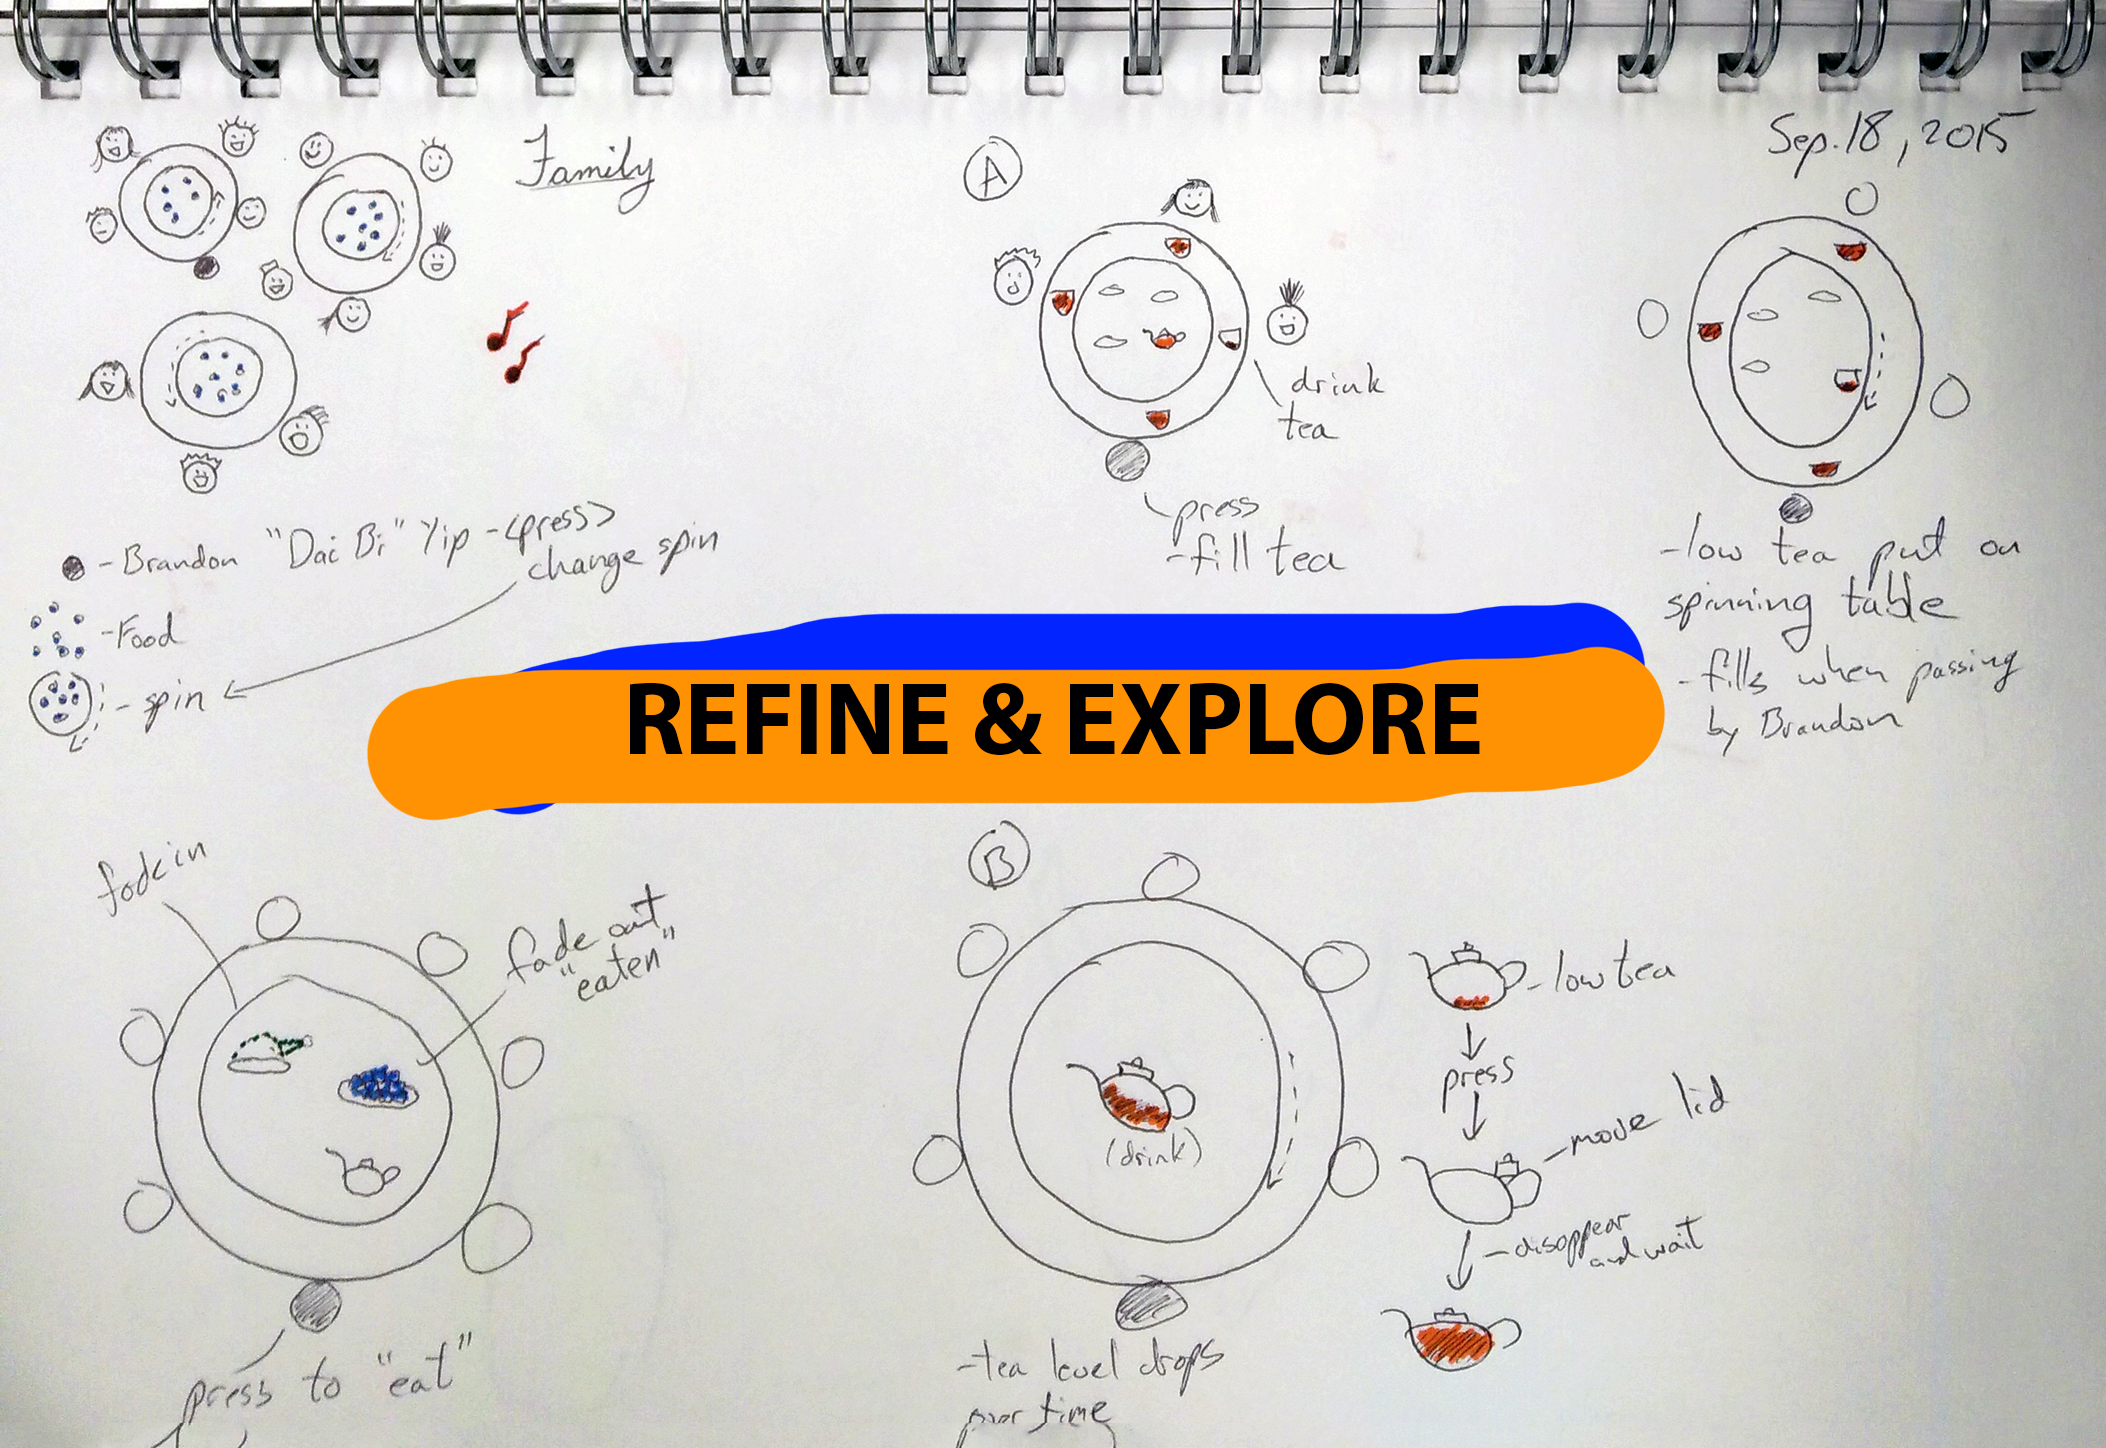 Family
A
Sep.18, 2015
drink
tea
press
-fill tea
-low tea put on
spinning table
-fills when passing
by Brandon
-Brandon "Dai Bi" Yip -<press>
change spin
-Food
-spin
REFINE & EXPLORE
fade in
fade out
"eaten"
press to "eat"
B
(drink)
-tea level drops
over time
-low tea
press
-move lid
-disappear
and wait